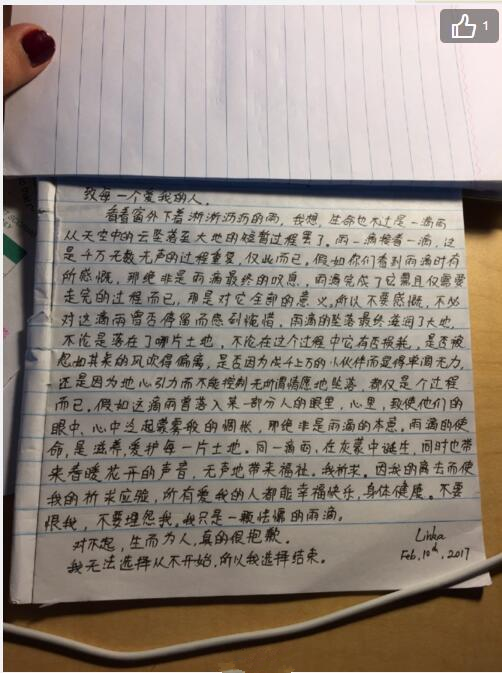 1
致每一个爱我的人,
看着窗外下着淅淅沥沥的雨,我想,生命也不过是一滴雨
从天空中的云坠落至大地的短暂过程罢了。雨一滴接着一滴,这
是千万无数无声的过程重复,仅此而已,假如你们看到雨滴时有
所感慨,那绝非是雨滴最终的叹息,雨滴完成了它需且仅需要
走完的过程而已,那是对它全部的意义。所以不要感慨,不必
对这滴雨曾否停留而感到惋惜,雨滴的坠落最终滋润了大地,
不论是落在了哪片土地,不论在这个过程中它有否损耗,是否被
忽如其来的风吹得偏离,是否因为成千上万的小伙伴而显得单调无力,
还是因为地心引力而不能控制无所谓情愿地坠落,都仅是个过程
而已,假如这滴雨曾落入某一部分人的眼里,心里,致使他们的
眼中、心中泛起蒙蒙我的惆怅,那绝非是雨滴的本意。雨滴的使
命,是滋养,爱护每一片土地。同一滴雨,在灰蒙中诞生,同时也带
来春暖花开的声音,无声地带来福祉。我祈求。因我的离去而使
我的祈求应验,所有爱我的人都能幸福快乐,身体健康。不要
恨我,不要埋怨我,我只是一颗怯懦的雨滴。
对不起,生而为人,真的很抱歉。
我无法选择从不开始,所以我选择结束。
Linka
Feb, 10th, 2017